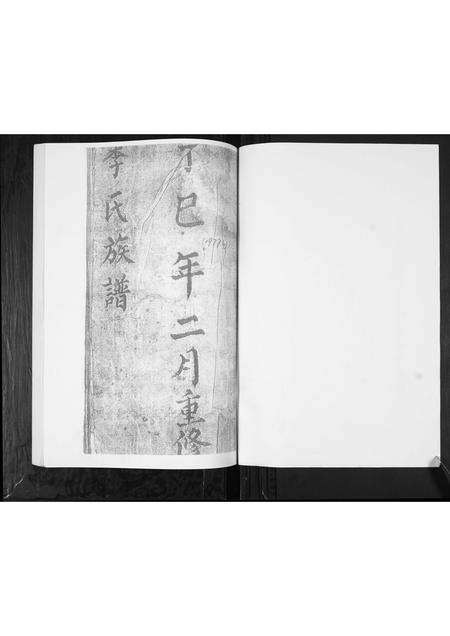 丁巳年二月重修
李氏族譜